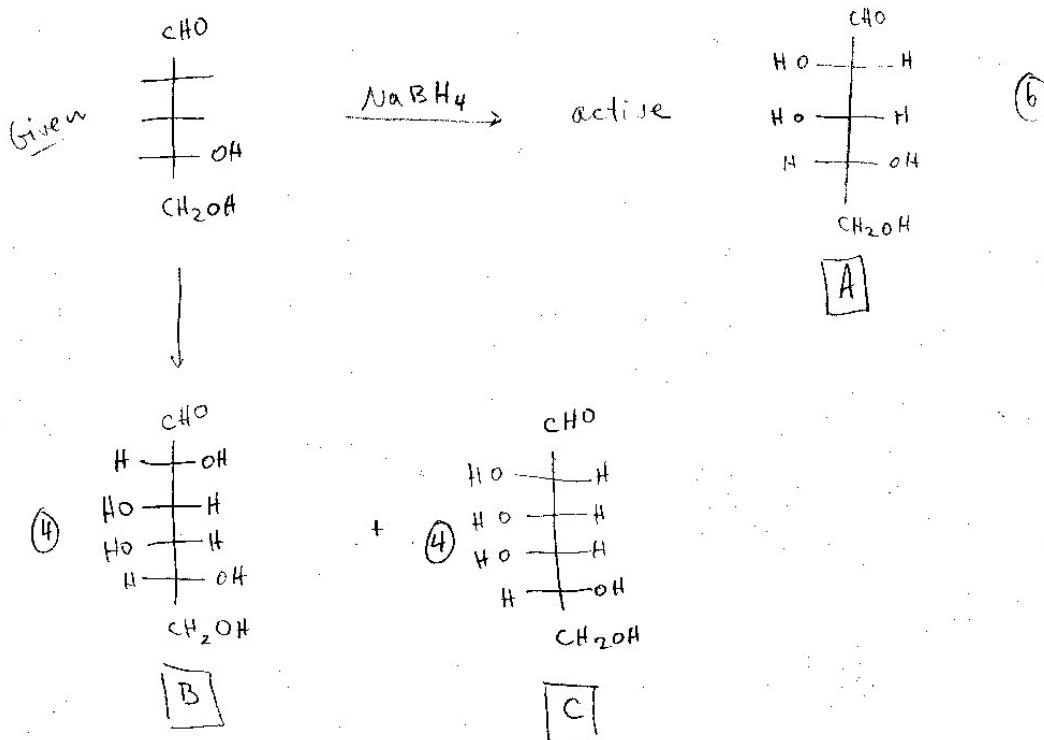 CHO
OH
CH2OH
Given
NaBH4
active
CHO
HO H
HO H
H OH
CH2OH
A
6
CHO
H OH
HO H
HO H
H OH
CH2OH
4
B
+
CHO
HO H
HO H
HO H
H OH
CH2OH
4
C